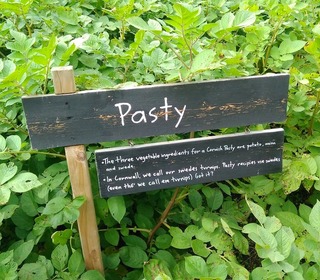 Pasty
• The three vegetable ingredients for a Cornish Pasty are potato, onion
and swede.
• In Cornwall, we call our swedes turnips. Pasty recipies use swedes
(even tho' we call em turnips) Got it?